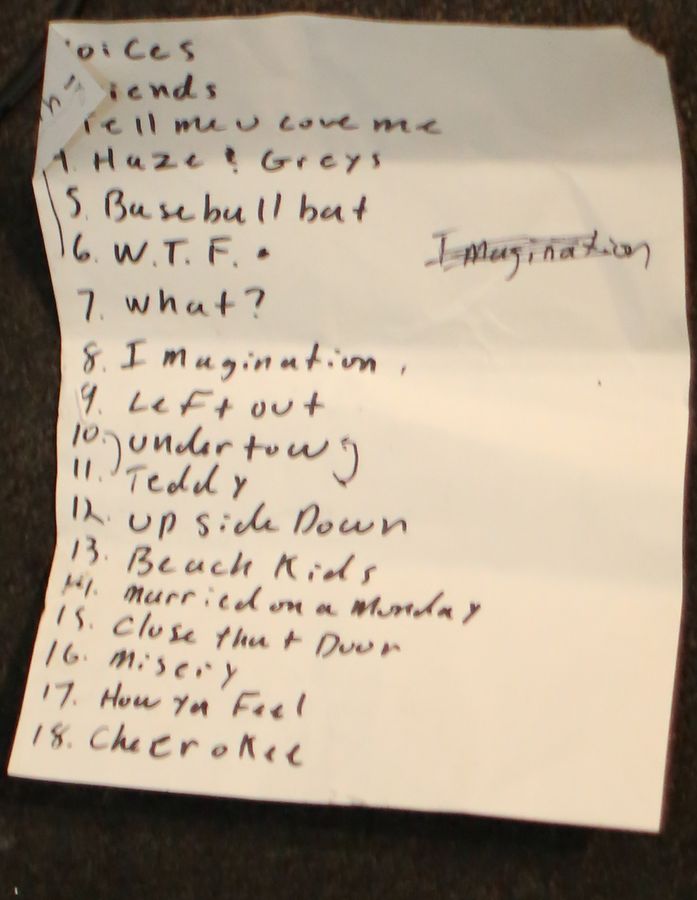 oices
iends
Tell me u love me
4. Haze & Greys
5. Baseball bat
6. W.T.F. •
Imagination
7. What?
8. Imagination,
9. Left out
10. undertow
11. Teddy
12. up side Down
13. Beach Kids
14. married on a monday
15. Close that Door
16. misery
17. How ya Feel
18. Cheerokee